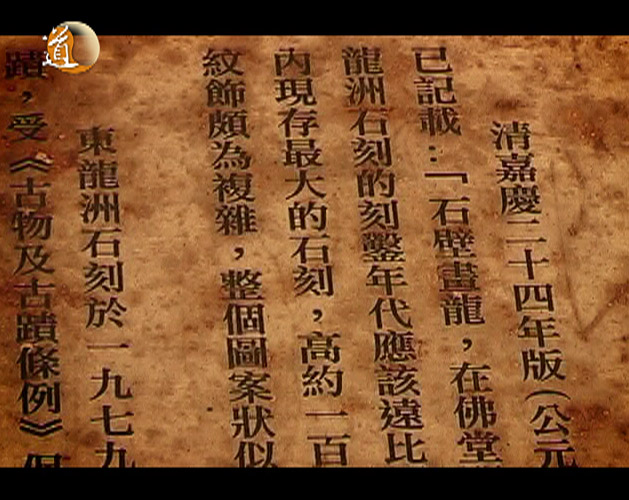 道
清嘉慶二十四年版(公元
已記載:「石壁畫龍,在佛堂
龍洲石刻的刻鑿年代應該遠比
內現存最大的石刻,高約一百
紋飾頗為複雜,整個圖案狀似
東龍洲石刻於一九七九
蹟,受《古物及古蹟條例》保